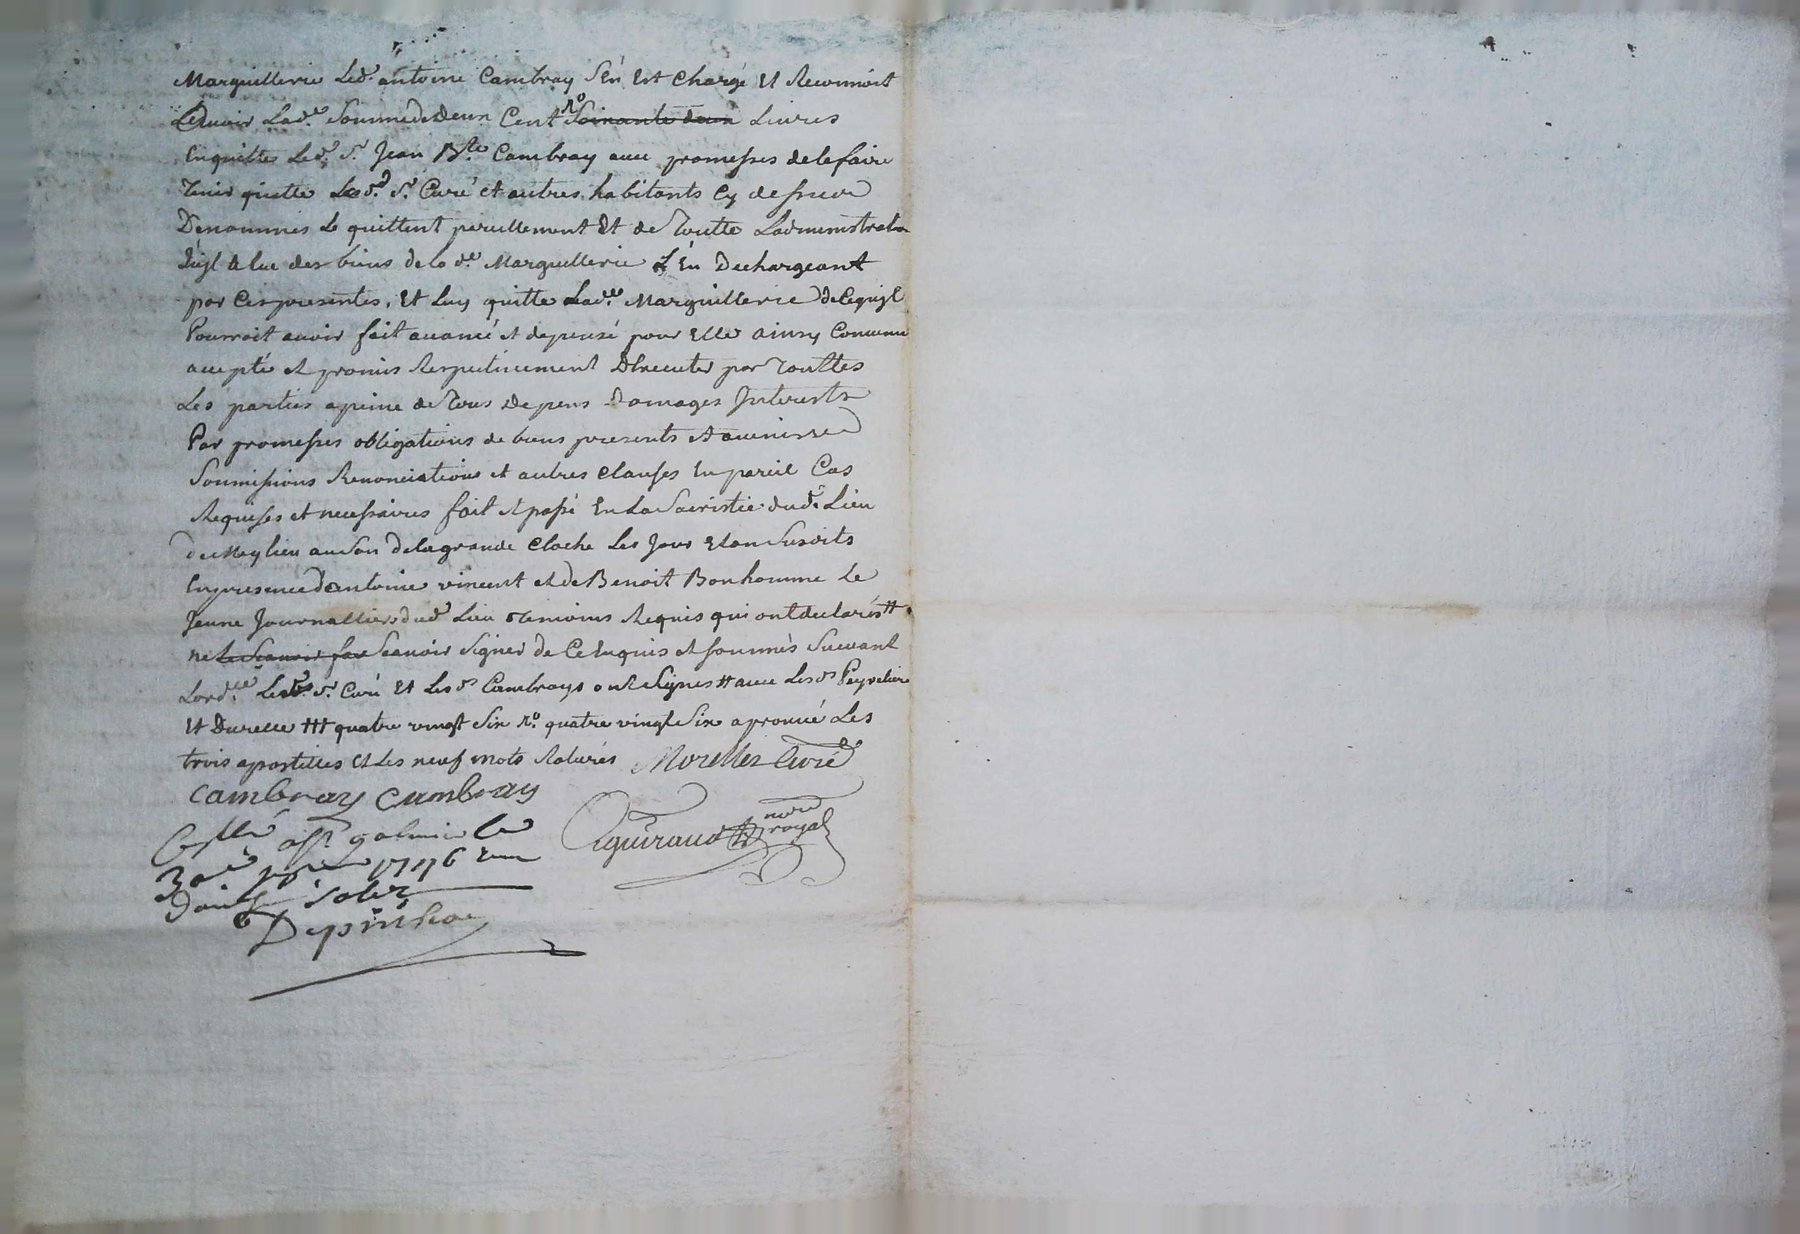 Marguillerie Led.t antoine Cambray s'én Est Chargé Et Reconnoit
Devoir Lad.e Somme de Deux Cent Soixante deux Livres
Enquitte Led.t S.r Jean B.te Cambray avec promesses de le faire
Tenir quitte Led.t S.r Curé et autres habitants Cy dessus
Dénommés Le quittent pareillement Et de Toutte Ladministration
quil A Eue des biens de la d.e Marguillerie L'En Dechargeant
par Ces presentes, Et Luy quitte Lad.e Marguillerie De Cequil
Pourroit avoir fait avancé et depensé pour Elle ainsy Convenu
accepté et promis Respectivement D'Executer par Touttes
Les parties a peine de Tous Depens Domages Interests
Par promesses obligations de biens presents et avenir
Soumissions Renonciations et autres Clauses En pareil Cas
Requises et necessaires fait et passé En La Sacristie dud.t Lieu
de Meylieu au Son de la grande Cloche Les Jour Et an Susdits
En presence d'antoine vincent et de Benoit Bonhomme Le
Jeune Journalliers dud.t Lieu Temoins Requis qui ont declarés #
ne le Scavoir fare Scavoir Signer de Ce Enquis et sommés Suivant
Lord.ce Led.t S.r Curé Et Les d.s Cambrays ont Signés # avec Les d.s Peyrelier
Et Durelle ## quatre vingt Six R.o quatre vingt Six aprouvé Les
trois apostilles Et Les neuf mots Raturés Morellet Curé
Cambray Cambray
Con.llé a S.t galmier le
30e 1746 Reçu
Douze Sols
Eguiraud no.re royal